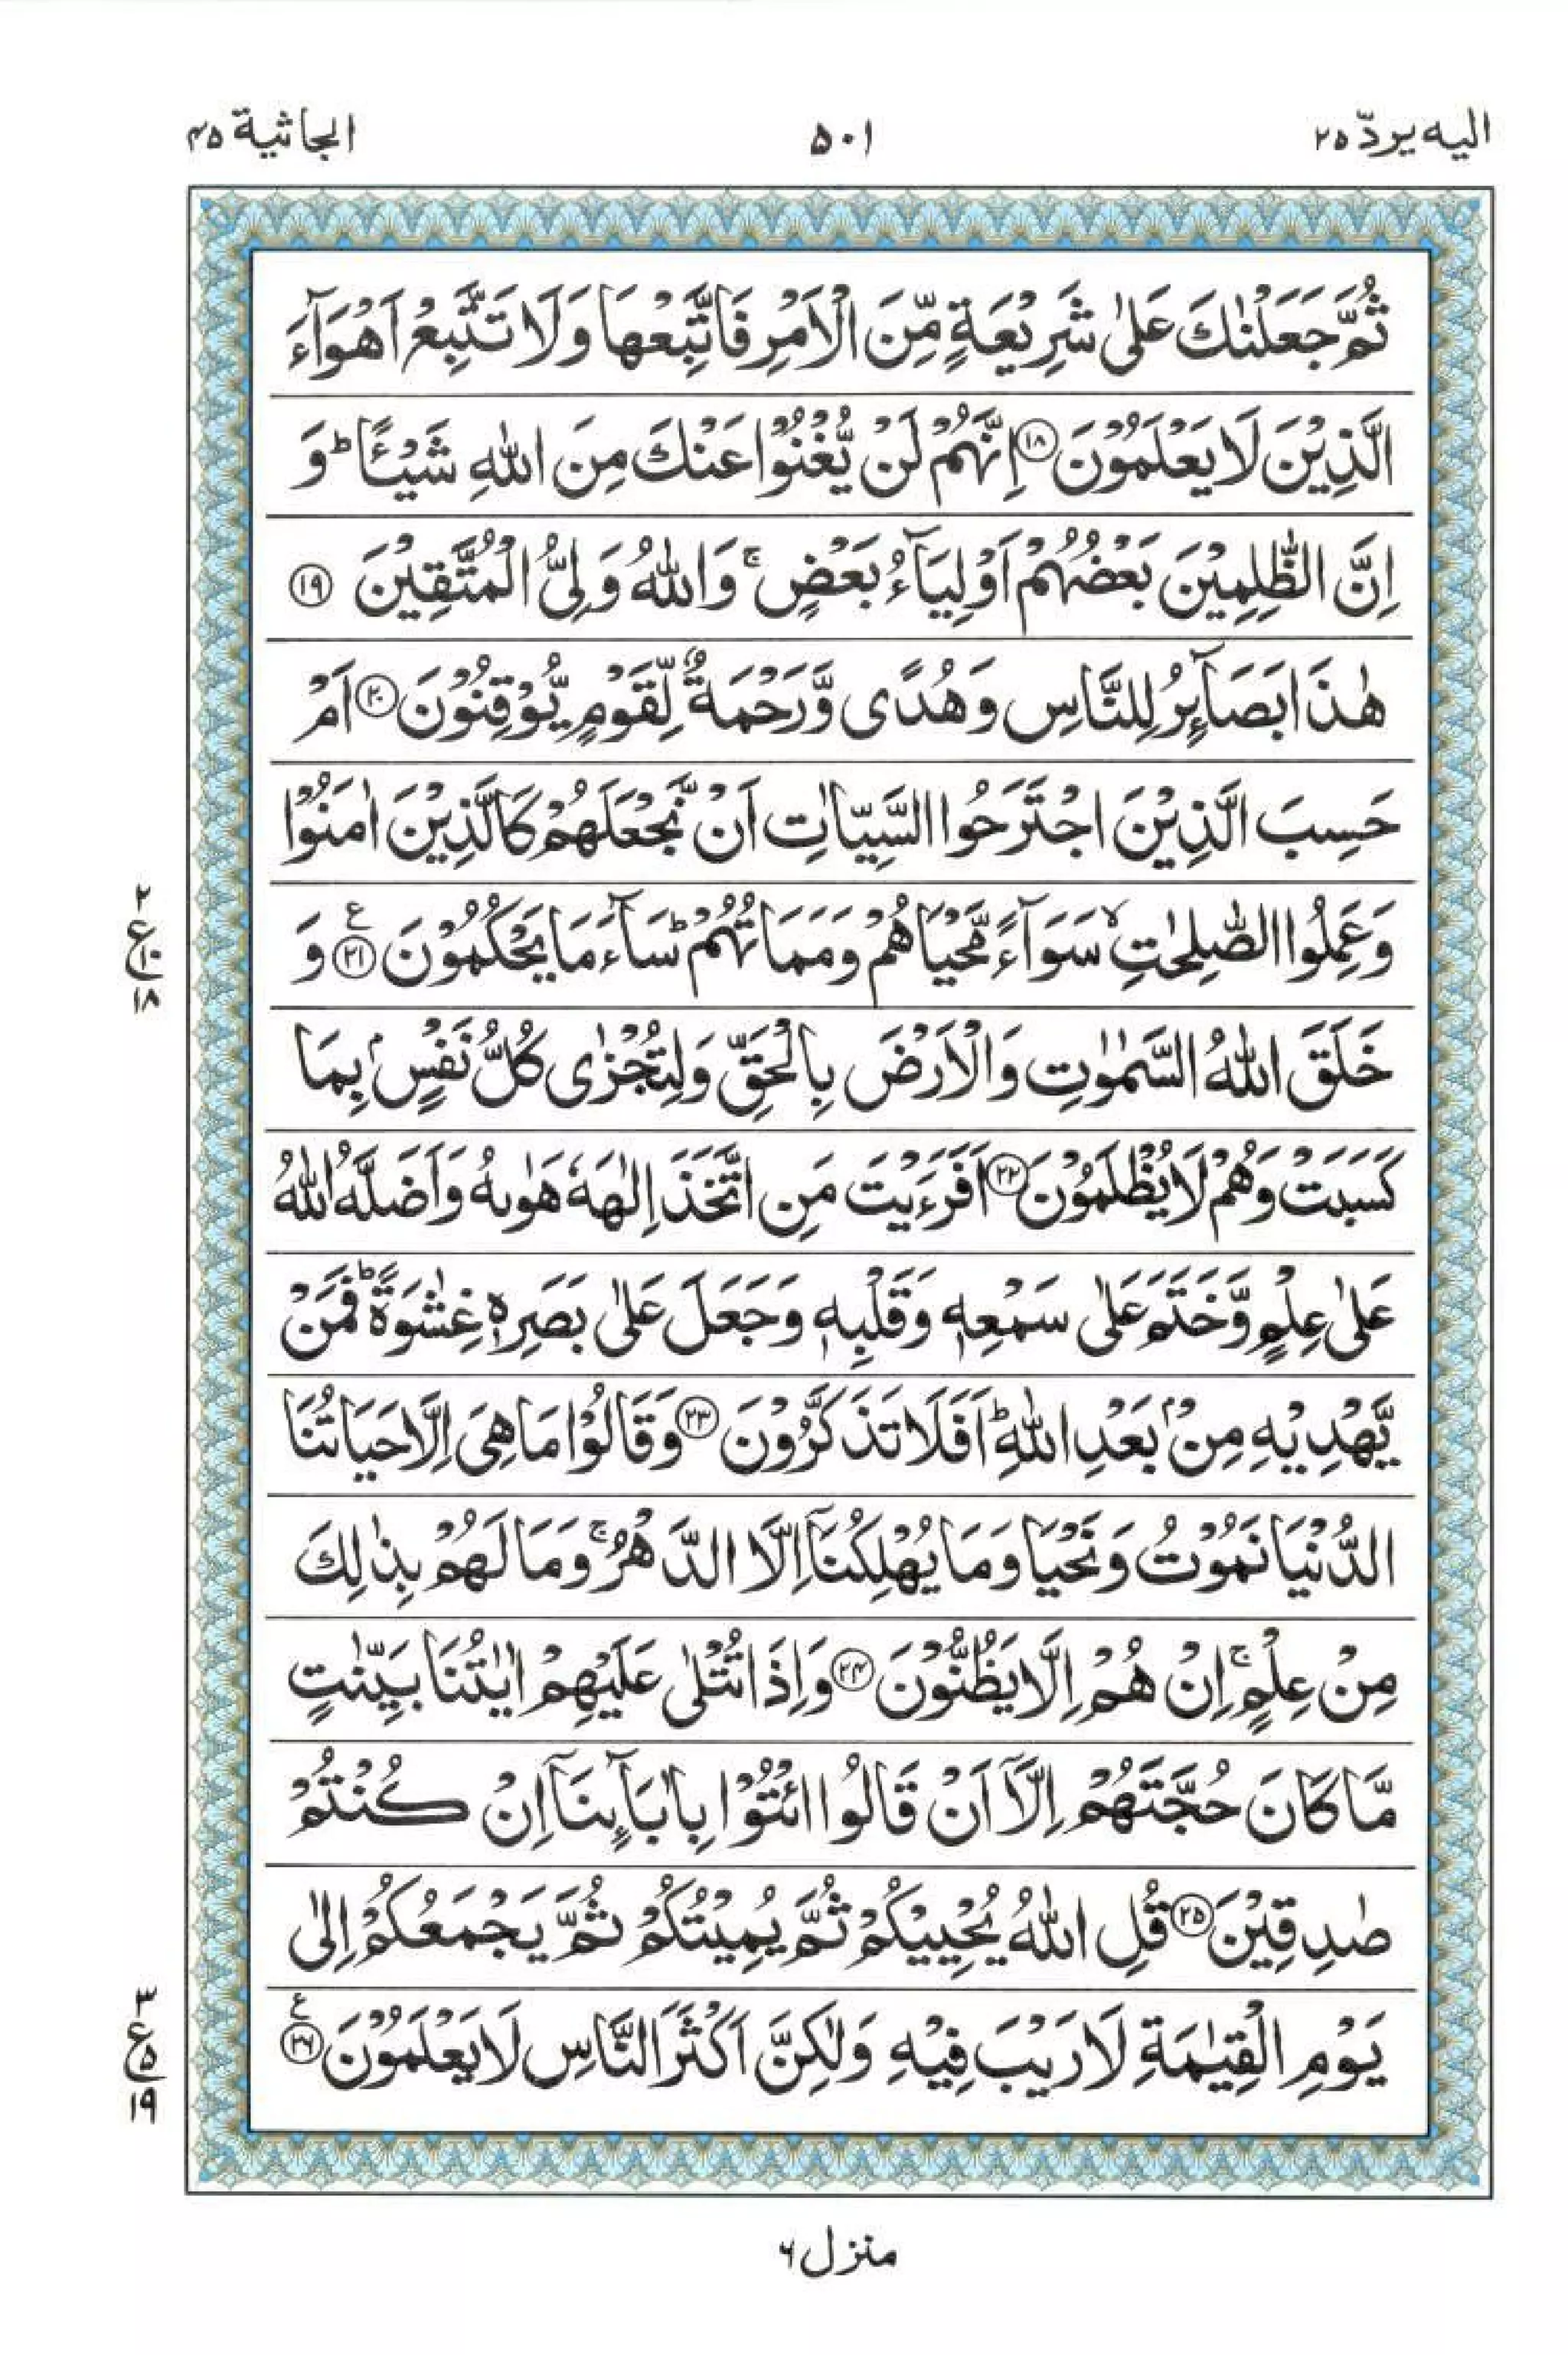 اليه يردّ ٢٥
٥٠١
الجاثية ٤٥
ثُمَّ جَعَلْنٰكَ عَلٰى شَرِيْعَةٍ مِّنَ الْاَمْرِ فَاتَّبِعْهَا وَلَا تَتَّبِعْ اَهْوَآءَ
الَّذِيْنَ لَا يَعْلَمُوْنَ ﴿١٨﴾ اِنَّهُمْ لَنْ يُّغْنُوْا عَنْكَ مِنَ اللّٰهِ شَيْـًٔا ؕ وَ
اِنَّ الظّٰلِمِيْنَ بَعْضُهُمْ اَوْلِيَآءُ بَعْضٍ ۚ وَاللّٰهُ وَلِيُّ الْمُتَّقِيْنَ ﴿١٩﴾
هٰذَا بَصَآئِرُ لِلنَّاسِ وَهُدًى وَّرَحْمَةٌ لِّقَوْمٍ يُّوْقِنُوْنَ ﴿٢٠﴾ اَمْ
حَسِبَ الَّذِيْنَ اجْتَرَحُوا السَّيِّاٰتِ اَنْ نَّجْعَلَهُمْ كَالَّذِيْنَ اٰمَنُوْا
وَعَمِلُوا الصّٰلِحٰتِ ۙ سَوَآءً مَّحْيَاهُمْ وَمَمَاتُهُمْ ؕ سَآءَ مَا يَحْكُمُوْنَ ﴿٢١﴾ ع وَ
٢
ع ١٠
١٨
خَلَقَ اللّٰهُ السَّمٰوٰتِ وَالْاَرْضَ بِالْحَقِّ وَلِتُجْزٰى كُلُّ نَفْسٍۭ بِمَا
كَسَبَتْ وَهُمْ لَا يُظْلَمُوْنَ ﴿٢٢﴾ اَفَرَءَيْتَ مَنِ اتَّخَذَ اِلٰهَهٗ هَوٰىهُ وَاَضَلَّهُ اللّٰهُ
عَلٰى عِلْمٍ وَّخَتَمَ عَلٰى سَمْعِهٖ وَقَلْبِهٖ وَجَعَلَ عَلٰى بَصَرِهٖ غِشٰوَةً ؕ فَمَنْ
يَّهْدِيْهِ مِنْۢ بَعْدِ اللّٰهِ ؕ اَفَلَا تَذَكَّرُوْنَ ﴿٢٣﴾ وَقَالُوْا مَا هِيَ اِلَّا حَيَاتُنَا
الدُّنْيَا نَمُوْتُ وَنَحْيَا وَمَا يُهْلِكُنَآ اِلَّا الدَّهْرُ ۚ وَمَا لَهُمْ بِذٰلِكَ
مِنْ عِلْمٍ ۚ اِنْ هُمْ اِلَّا يَظُنُّوْنَ ﴿٢٤﴾ وَاِذَا تُتْلٰى عَلَيْهِمْ اٰيٰتُنَا بَيِّنٰتٍ
مَّا كَانَ حُجَّتَهُمْ اِلَّآ اَنْ قَالُوا ائْتُوْا بِاٰبَآئِنَآ اِنْ كُنْتُمْ
صٰدِقِيْنَ ﴿٢٥﴾ قُلِ اللّٰهُ يُحْيِيْكُمْ ثُمَّ يُمِيْتُكُمْ ثُمَّ يَجْمَعُكُمْ اِلٰى
يَوْمِ الْقِيٰمَةِ لَا رَيْبَ فِيْهِ وَلٰكِنَّ اَكْثَرَ النَّاسِ لَا يَعْلَمُوْنَ ﴿٢٦﴾ ع
٣
ع ٥
١٩
منزل ٦